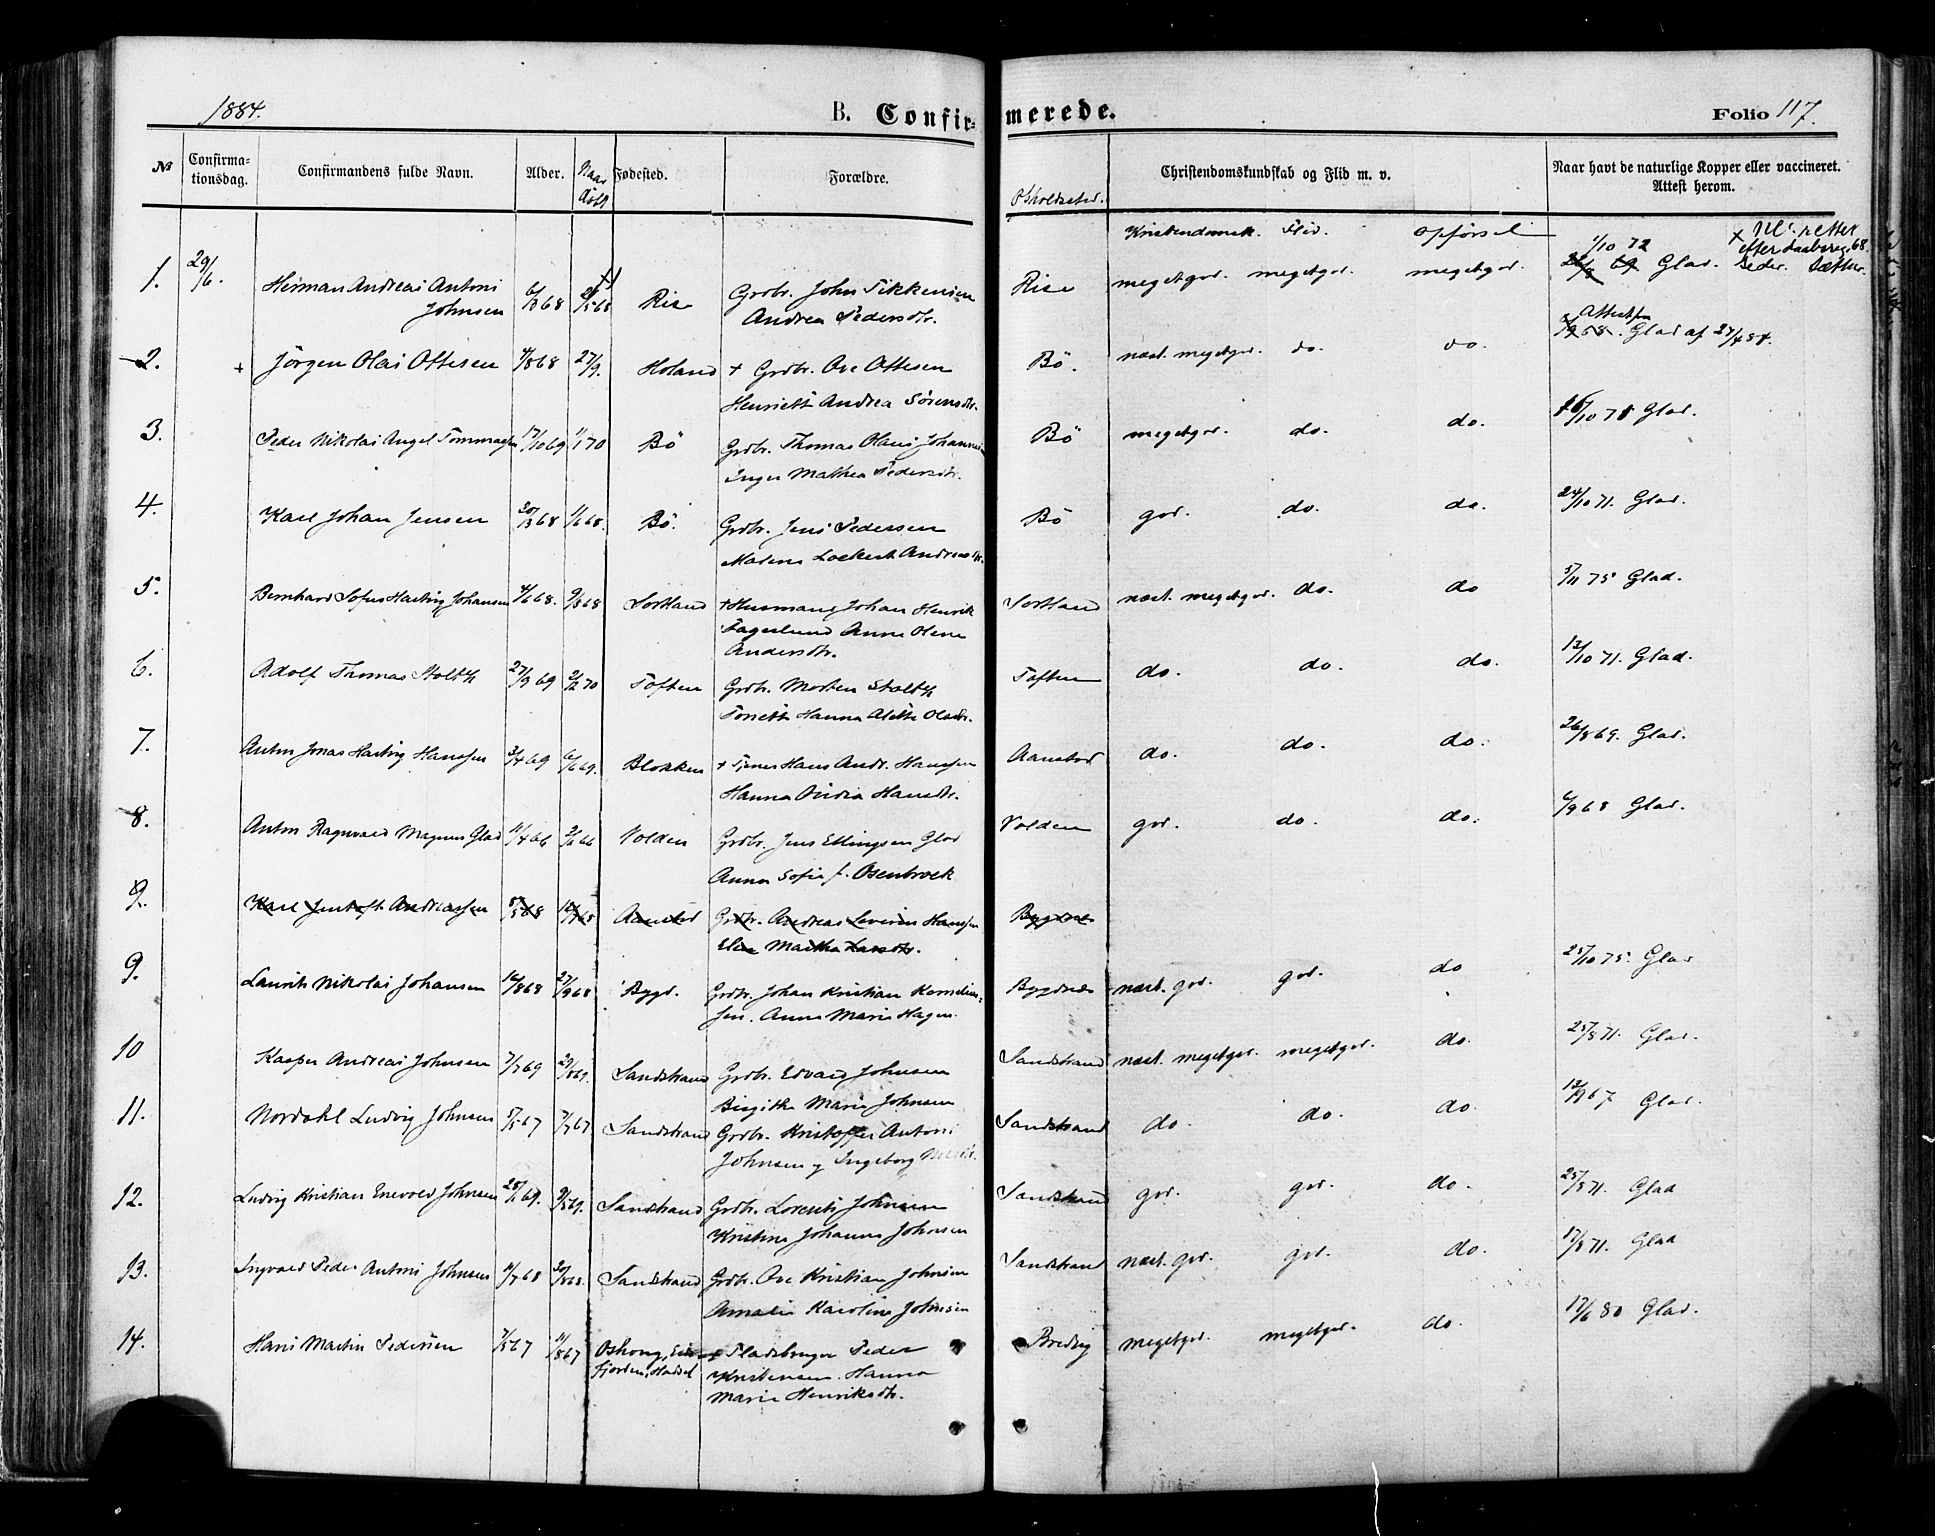 1884.
B. Confir-
merede.
Folio 117.
№
Confirma-
tionsdag.
Confirmandens fulde Navn.
Alder.
Naar
døbt
Fødested.
Forældre.
Opholdssted.
Christendomskundskab og Flid m. v.
Naar havt de naturlige Kopper eller vaccineret.
Attest herom.
Kristendomsk. Flid. Opførsel
1/10 72
efter Daabsreg. 68.
1. 29/6. Herman Andreas Antoni
Johnsen
Rise
Grdbr. John Tikkensen
Andrea Pedersdtr.
Rise megetgod. megetgod. megetgod.
Glad.
2. + Jörgen Olai Ottesen 4/8 68 27/9.
Holand + Grdbr. Ove Ottesen
Henriette Andrea Sörensdtr.
Bö. næst. megetgod. do. do.
Glad af 27/4 84.
3. Peder Nikolai Angel Tommassen 17/10 69 1/1 70
Bö Grdbr. Thomas Olaus Johannesen
Inger Mathea Pedersdtr.
Bö megetgod. do. do.
Glad.
4. Karl Johan Jensen 20/3 68 1/6 68.
Bö. Grdbr. Jens Pedersen
Maren Lockert Andreasdtr.
Bö god. do. do. 24/10 71. Glad.
5. Bernhard Sofus Hartvig Johansen 4/6 68. 9/8 68
Sortland + Husmand Johan Henrik
Fagerlund Anne Olene
Andersdtr.
Sortland næst. megetgod. do. do 5/11 75 Glad.
6. Adolf Thomas Stoltz 27/9 69 2/2 70
Toften Grdbr. Morten Stoltz
Tonette Hanna Alette Olsdtr.
Toften do. do. do. 13/10 71. Glad.
7. Anton Jonas Hartvig Hanssen 3/4 69 6/6 69.
Blokken + Tjener Hans Andr. Hanssen
Hanna Hansdtr.
Aanstad do. do. do. 26/8 69. Glad.
8. Anton Ragnvald Magnus Glad 11/4 66 2/6 66
Volden Grdbr. Jens Ellingsen Glad
Anna Sofie f. Osenbroek
Volden god. do. do. 6/9 68 Glad.
9. Karl Jentoft Andreassen
Aanstad Grdbr. Andreas Severin Hanssen
Eline Martha Larsdtr.
Bygdnes
9. Laurits Nikolai Johansen 16/8 68 27/9 68
Bygd. Grdbr. Johan Kristian Kornelius-
sen. Anne Marie Hagen.
Bygdnes næst. god. god. do 25/10 75. Glad
10 Kasper Andreas Johnsen 7/7 69 29/8 69.
Sandstrand Grdbr. Edvard Johnsen
Birgithe Marie Johnsen
Sandstrand næst. megetgod. megetgod. do. 25/8 71. Glad.
11. Nordahl Ludvig Johnsen 5/5 67 7/7 67
Sandstrand Grdbr. Kristoffer Antoni
Johnsen og Ingeborg Nilsdtr.
Sandstrand do. do. do. Glad.
12. Ludvig Kristian Enevold Johnsen
Sandstrand Grdbr. Lorents Johnsen
Kristine Johanne Johnsen
Sandstrand god. god. do. 25/8 71. Glad
13. Ingvald Peder Antoni Johnsen
Sandstrand Grdbr. Ove Kristian Johnsen
Amalie Karoline Johnsen
Sandstrand næst. god. god. do. 17/8 71. Glad
14. Hans Martin Pedersen
Fjorden, Hadsel
+ Pladsbruger Peder
Kristensen. Hanna
Marie Henriksdtr.
Bredvig megetgod. megetgod. do. 17/6 80 Glad.